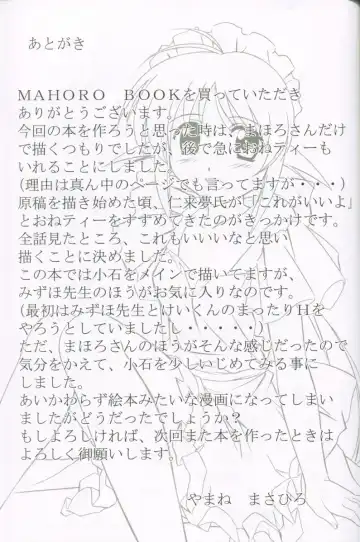 あとがき
MAHORO BOOKを買っていただき
ありがとうございます。
今回の本を作ろうと思った時は、まほろさんだけ
で描くつもりでしたが、後で急におねティーも
いれることにしました。
(理由は真ん中のページでも言ってますが・・・)
原稿を描き始めた頃、仁来夢氏が「これがいいよ」
とおねティーをすすめてきたのがきっかけです。
全話見たところ、これもいいいなと思い
描くことに決めました。
この本では小石をメインで描いてますが、
みずほ先生のほうがお気に入りなのです。
(最初はみずほ先生とけいくんのまったりHを
やろうとしていましたし・・・・・)
ただ、まほろさんのほうがそんな感じだったので
気分をかえて、小石を少しいじめてみる事に
しました。
あいかわらず絵本みたいな漫画になってしまい
ましたがどうだったでしょうか？
もしよろしければ、次回また本を作ったときは
よろしく御願いします。
やまね まさひろ